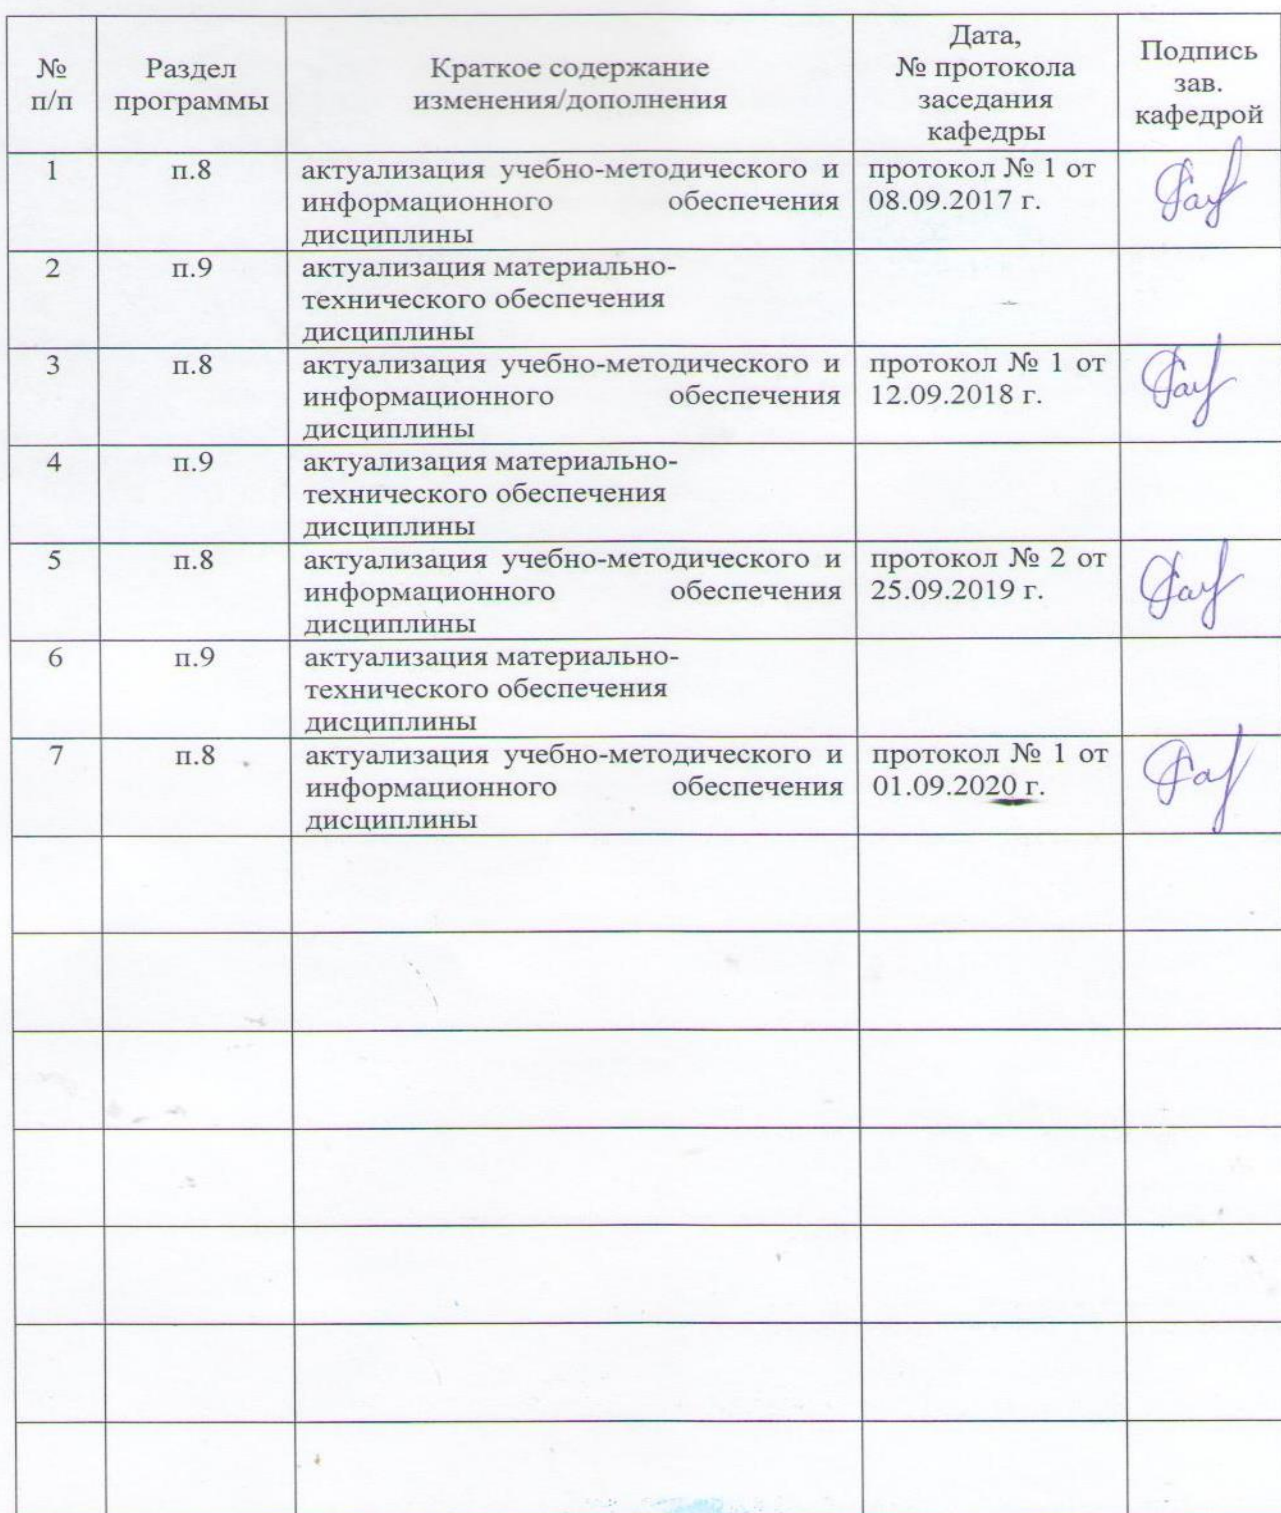 №
п/п
Раздел
программы
Краткое содержание
изменения/дополнения
Дата,
№ протокола
заседания
кафедры
Подпись
зав.
кафедрой
1
п.8
актуализация учебно-методического и
информационного обеспечения
дисциплины
протокол № 1 от
08.09.2017 г.
2
п.9
актуализация материально-
технического обеспечения
дисциплины
3
п.8
актуализация учебно-методического и
информационного обеспечения
дисциплины
протокол № 1 от
12.09.2018 г.
4
п.9
актуализация материально-
технического обеспечения
дисциплины
5
п.8
актуализация учебно-методического и
информационного обеспечения
дисциплины
протокол № 2 от
25.09.2019 г.
6
п.9
актуализация материально-
технического обеспечения
дисциплины
7
п.8
актуализация учебно-методического и
информационного обеспечения
дисциплины
протокол № 1 от
01.09.2020 г.